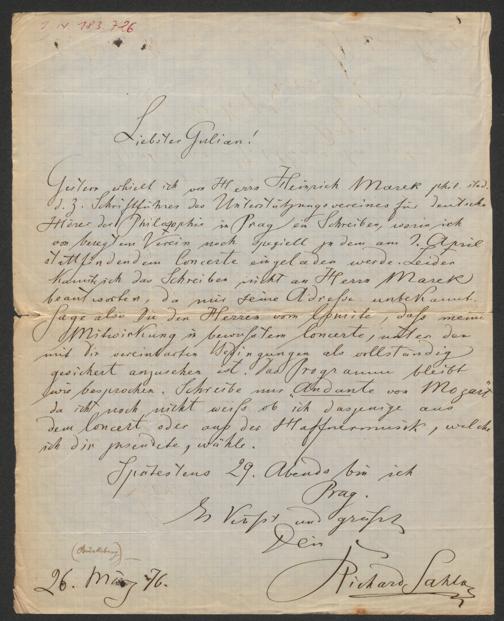 I. N. 183.726
Liebster Julian!
Gestern erhielt ich von Herrn Heinrich Marek phil. stud.
d. z. Schriftführer des Unterstützungsvereines für deutsche
Hörer der Philosophie in Prag ein Schreiben, worin ich
von besagtem Verein noch speziell zu dem am 2. April
stattfindendem Concerte eingeladen werde. Leider
kann ich das Schreiben nicht an Herrn Marek
beantworten, da mir seine Adresse unbekannt.
Sage also den Herren vom Comité, dass meine
Mitwirkung in bewusstem Concerte, unter den
mit dir vereinbarten Bedingungen als vollständig
gesichert anzusehen ist. Das Programm bleibt
wie besprochen. Schreibe nur "Andante von Mozart"
da ich noch nicht weiss ob ich dasjenige aus
dem Concert oder aus der Haffnermusik, welche
ich dir zusendete, wähle.
Spätestens 29. Abends bin ich
Prag.
Es küsst und grüsst
Dein
Richard Sahla
26. März 76.